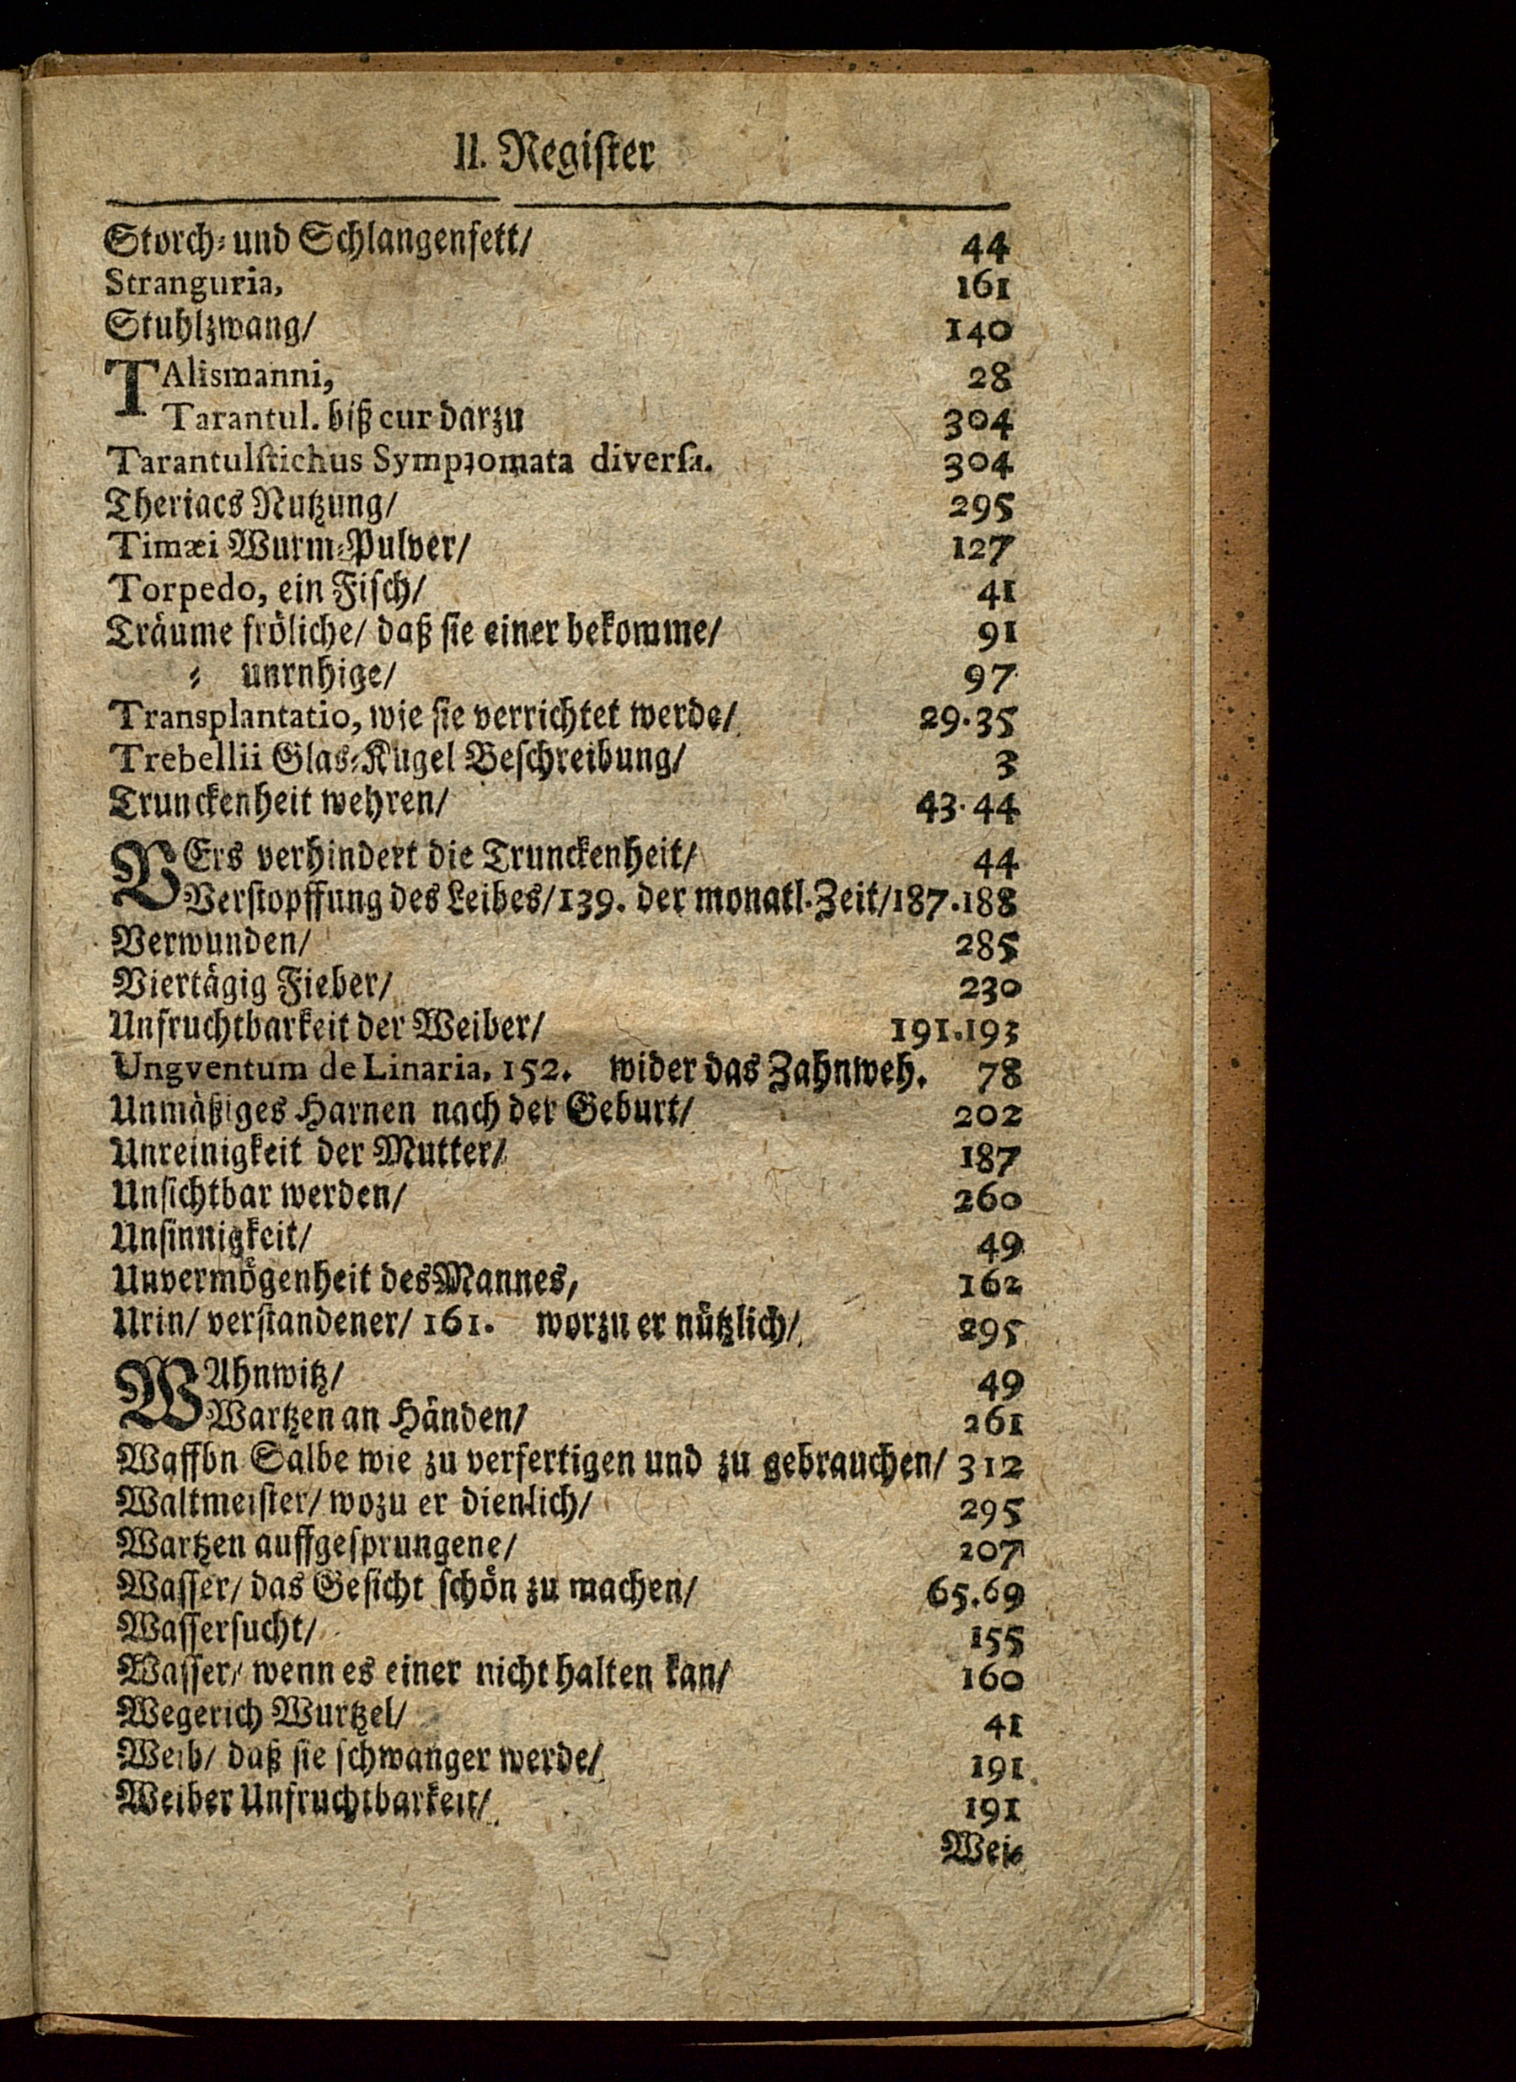 II. Regiſter
Storch⸗ und Schlangenfett/ 44
Stranguria, 161
Stuhlzwang/ 140
TAlismanni, 28
Tarantul. biß cur darzu 304
Tarantulſtichus Sympꝛomata diverſa. 304
Theriacs Nutzung/ 295
Timæi Wurm⸗Pulver/ 127
Torpedo, ein Fiſch/ 41
Träume fröliche/ daß ſie einer bekomme/ 91
⸗ unrnhige/ 97
Transplantatio, wie ſie verrichtet werde/ 29.35
Trebellii Glas⸗Kugel Beſchreibung/ 3
Trunckenheit wehren/ 43.44
VErs verhindert die Trunckenheit/ 44
Verſtopffung des Leibes/139. der monatl.Zeit/187.188
Verwunden/ 285
Viertägig Fieber/ 230
Unfruchtbarkeit der Weiber/ 191.193
Ungventum de Linaria, 152. wider das Zahnweh. 78
Unmäßiges Harnen nach der Geburt/ 202
Unreinigkeit der Mutter/ 187
Unſichtbar werden/ 260
Unſinnigkeit/ 49
Unvermögenheit des Mannes, 162
Urin/ verſtandener/ 161. worzu er nützlich/ 295
WAhnwitz/ 49
Wartzen an Händen/ 261
Waffbn Salbe wie zu verfertigen und zu gebrauchen/ 312
Waltmeiſter/ wozu er dienlich/ 295
Wartzen auffgeſprungene/ 207
Waſſer/ das Geſicht ſchön zu machen/ 65.69
Waſſerſucht/ 155
Waſſer/ wenn es einer nicht halten kan/ 160
Wegerich Wurtzel/ 41
Weib/ daß ſie ſchwanger werde/ 191
Weiber Unfruchtbarkeit/ 191
Wei⸗